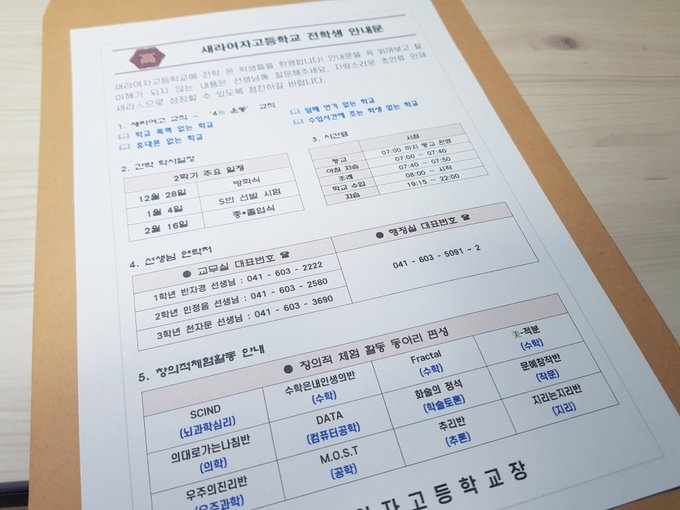 새라여자고등학교 전학생 안내문
새라여자고등학교에 전학 온 학생들을 환영합니다! 안내문을 꼭 읽어보고 잘
이해가 되지 않는 내용은 선생님께 질문해주세요. 자랑스러운 초인류 인재
새라人으로 성장할 수 있도록 정진하길 바랍니다.
1. 새라여고 교칙 - '4無 운동' 교칙
학교 폭력 없는 학교
담배 연기 없는 학교
휴대폰 없는 학교
수업시간에 조는 학생 없는 학교
2. 간략 학사일정
2학기 주요 일정
12월 28일 방학식
1월 4일 S반 선발 시험
2월 16일 종•졸업식
3. 시간표
시정
등교 07:00 까지 등교 완료
아침 자습 07:00 ~ 07:40
조례 07:40 ~ 07:50
학교 수업 08:00 ~ 시작
자습 19:15 ~ 22:00
4. 선생님 연락처
● 교무실 대표번호 ☎
● 행정실 대표번호 ☎
1학년 반자경 선생님 : 041 - 603 - 2222
2학년 민정음 선생님 : 041 - 603 - 2580
3학년 천자문 선생님 : 041 - 603 - 3690
041 - 603 - 5091 ~ 2
5. 창의적체험활동 안내
● 창의적 체험 활동 동아리 편성
SCIND (뇌과학심리)
수학은내인생의반 (수학)
Fractal (수학)
美-적분 (수학)
의대로가는나침반 (의학)
DATA (컴퓨터공학)
화술의 정석 (학술토론)
문예창작반 (작문)
우주의진리반 (우주과학)
M.O.S.T (공학)
추리반 (추론)
지리는지리반 (지리)
여자고등학교장